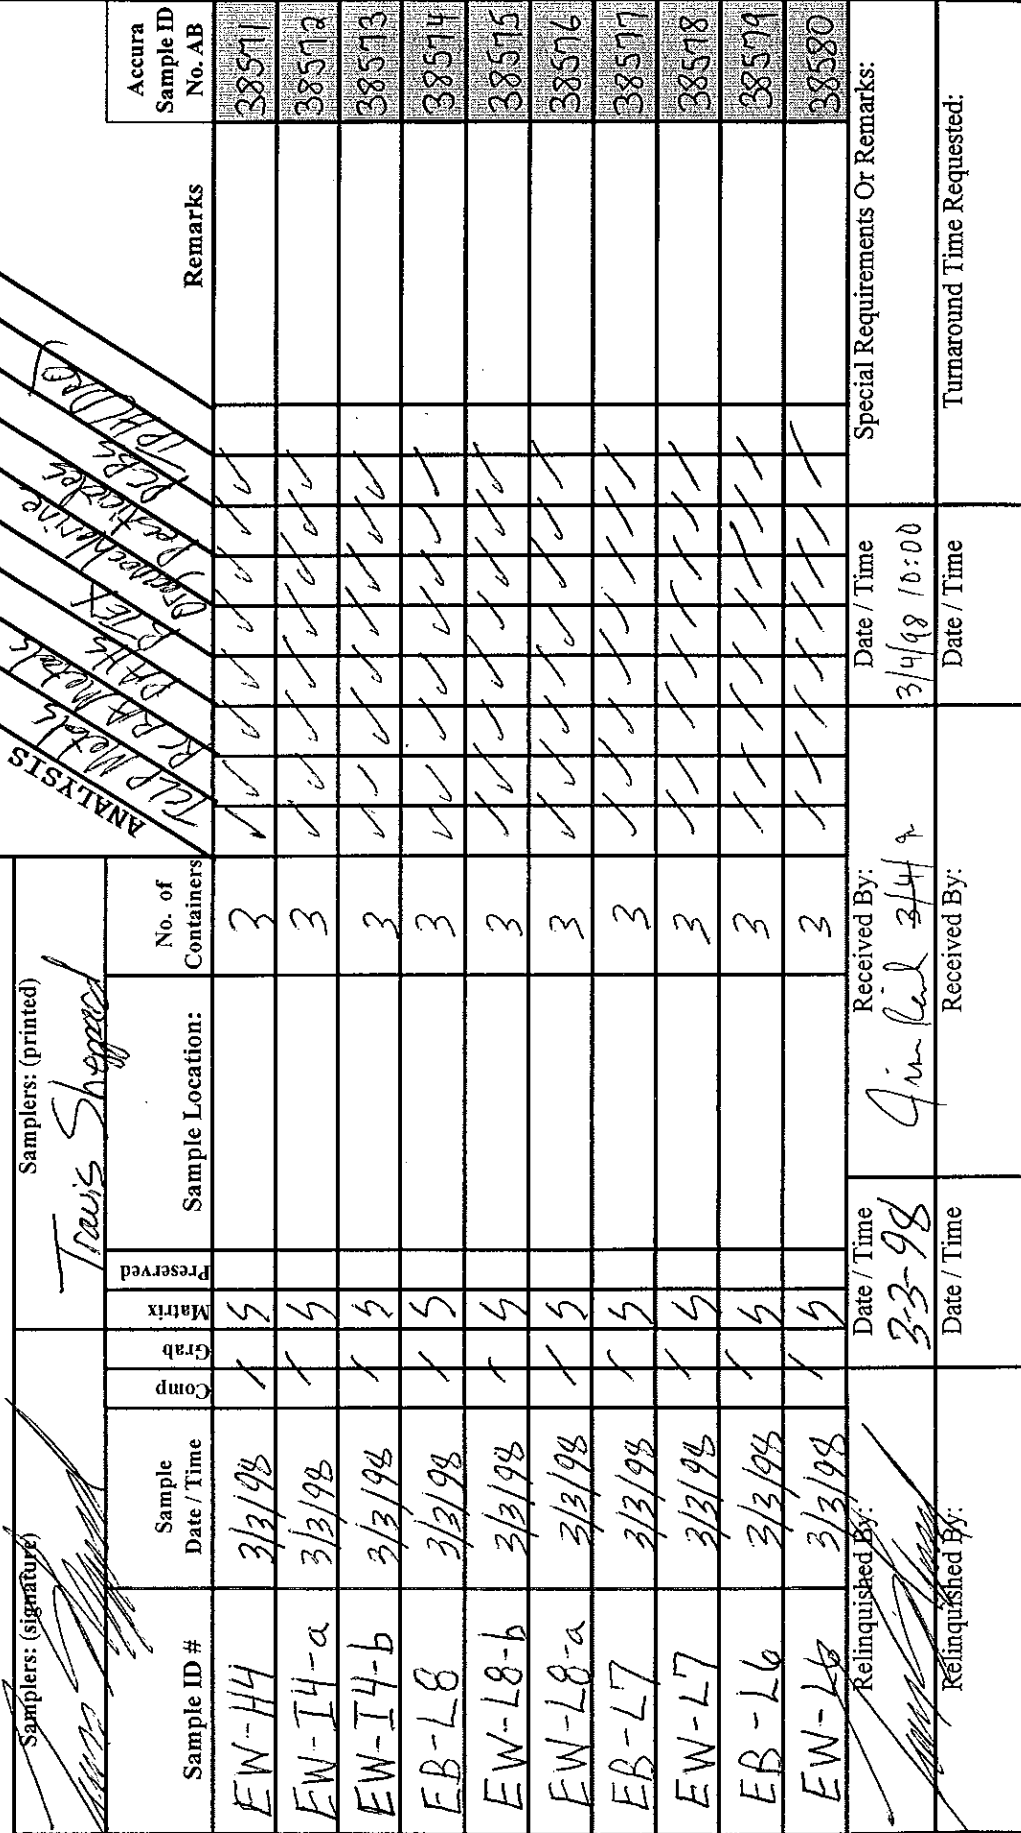 Samplers: (signature)
Samplers: (printed)
Travis Sheppard
ANALYSIS
TCLP Metals
RCRA Metals
PAHs
BTEX
Organochlorine
Pesticides
PCBs
TPH (DRO)
Sample ID # Sample Date / Time Comp Grab Matrix Preserved Sample Location: No. of Containers Remarks Accura Sample ID No. AB
EW-H4 3/3/98 ✓ S 3 ✓ ✓ ✓ ✓ ✓ ✓ ✓ 38571
EW-I4-a 3/3/98 ✓ S 3 ✓ ✓ ✓ ✓ ✓ ✓ ✓ 38572
EW-I4-b 3/3/98 ✓ S 3 ✓ ✓ ✓ ✓ ✓ ✓ ✓ 38573
EB-L8 3/3/98 ✓ S 3 ✓ ✓ ✓ ✓ ✓ ✓ ✓ 38574
EW-L8-b 3/3/98 ✓ S 3 ✓ ✓ ✓ ✓ ✓ ✓ ✓ 38575
EW-L8-a 3/3/98 ✓ S 3 ✓ ✓ ✓ ✓ ✓ ✓ ✓ 38576
EB-L7 3/3/98 ✓ S 3 ✓ ✓ ✓ ✓ ✓ ✓ ✓ 38577
EW-L7 3/3/98 ✓ S 3 ✓ ✓ ✓ ✓ ✓ ✓ ✓ 38578
EB-L6 3/3/98 ✓ S 3 ✓ ✓ ✓ ✓ ✓ ✓ ✓ 38579
EW-L6 3/3/98 ✓ S 3 ✓ ✓ ✓ ✓ ✓ ✓ ✓ 38580
Relinquished By: Date / Time Received By: Date / Time Special Requirements Or Remarks:
3-3-98 3/4/98 10:00
Relinquished By: Date / Time Received By: Date / Time Turnaround Time Requested: